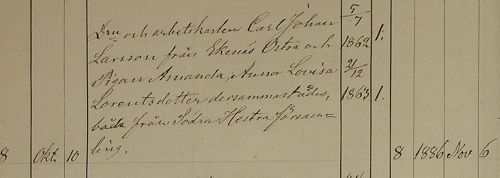 Drn och arbetskarlen Carl Johan 5/7
Larsson från Ekenäs Östra och 1862 1.
Pigan Amanda Anna Lovisa 21/12
Lorentsdotter dersammastädes, 1863 1.
båda från Södra Hestra Försam-
8 Okt. 10 ling. 8 1886 Nov 6